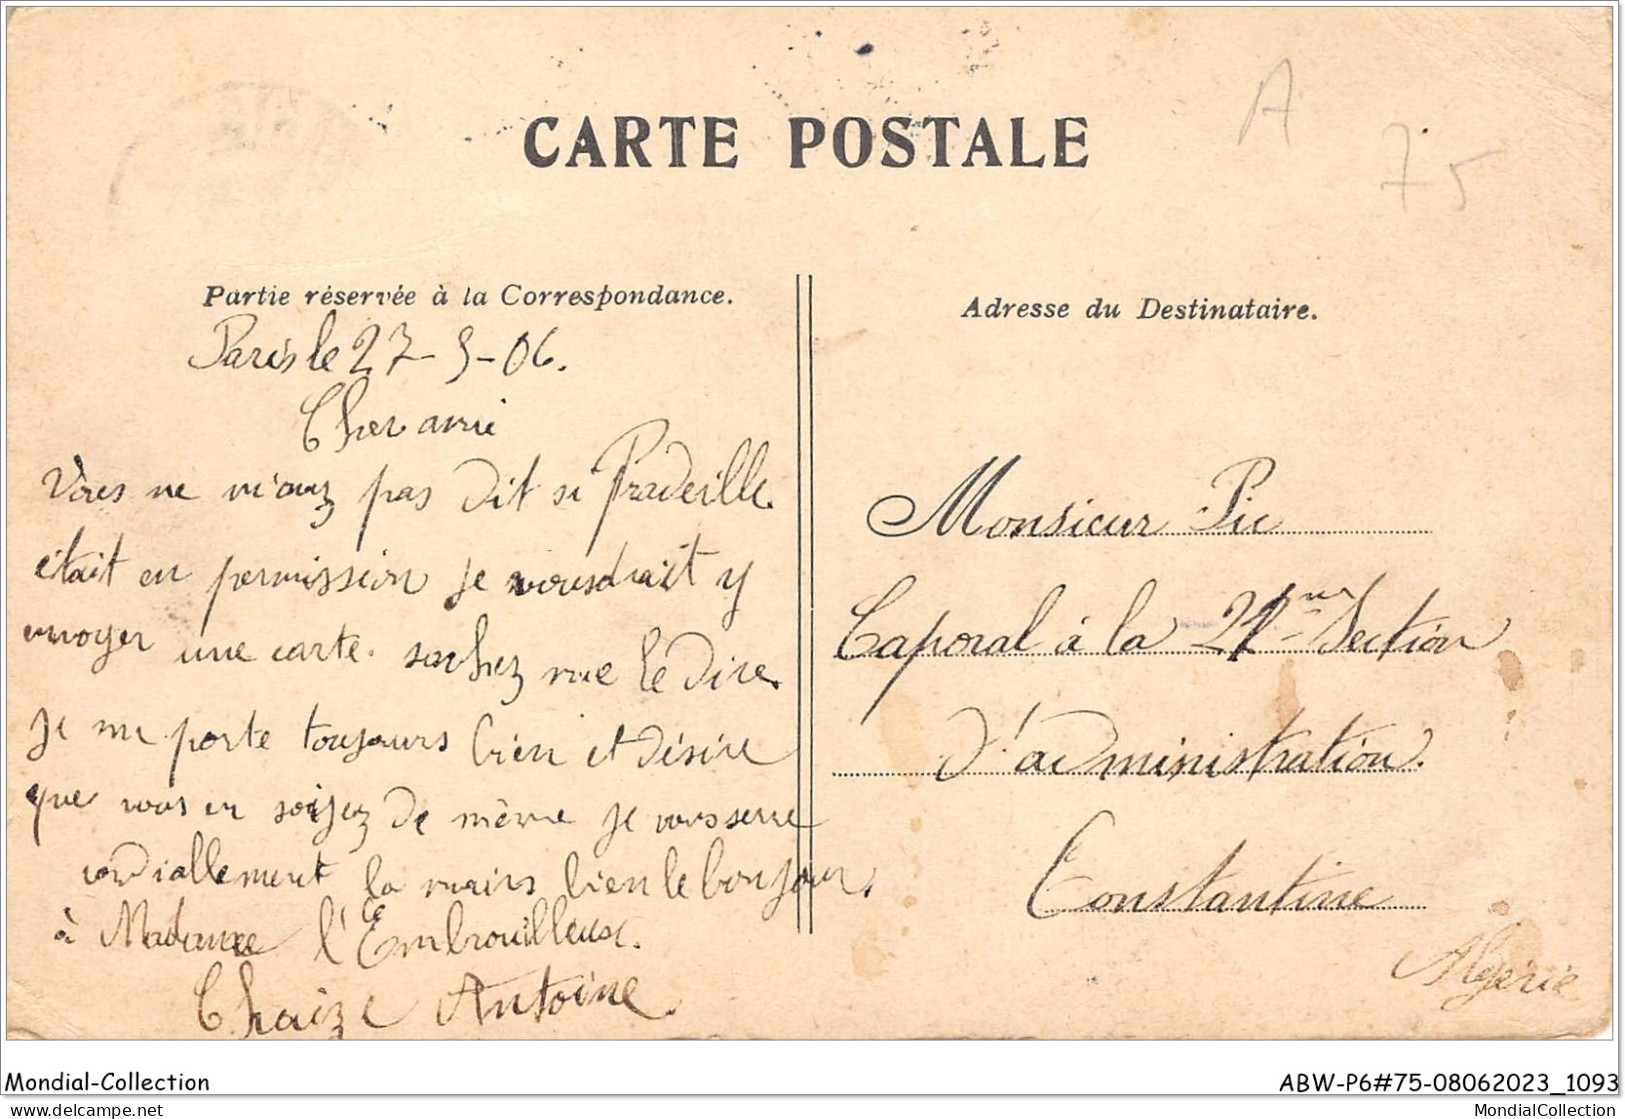 CARTE POSTALE
A
75
Partie réservée à la Correspondance.
Paris le 27-5-06.
Cher ami
Vous ne m'avez pas dit si Pradeille
était en permission je vousdrait y
envoyer une carte. sachez me le dire.
Je me porte toujours bien et désire
que vous en soijez de même je vous serre
cordiallement la main bien le bonjour
à Madame l'Embrouilleuse.
Chaize Antoine.
Adresse du Destinataire.
Monsieur Pic
Caporal à la Section
d'administration.
Constantine
Algérie
Mondial-Collection
ABW-P6#75-08062023_1093
delcampe.net
MondialCollection